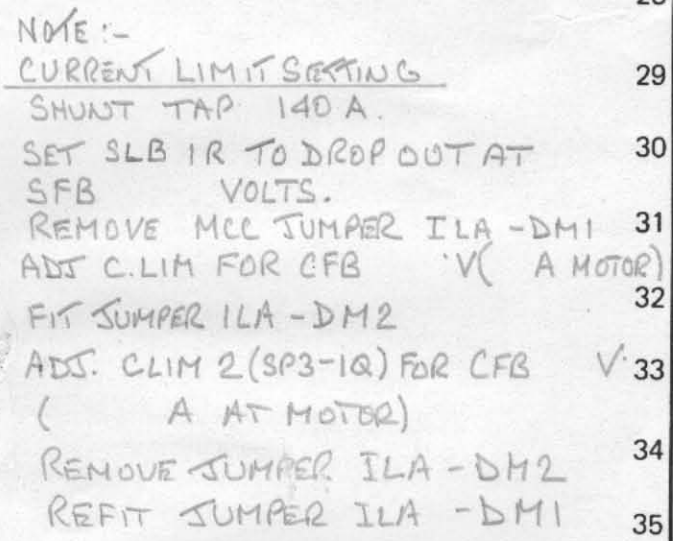 28
NOTE :-
CURRENT LIMIT SETTING 29
SHUNT TAP 140 A.
SET SLB IR TO DROP OUT AT 30
SFB VOLTS.
REMOVE MCC JUMPER ILA - DM1 31
ADJ C.LIM FOR CFB V( A MOTOR)
32
FIT JUMPER ILA - DM2
ADJ. CLIM 2 (SP3-1Q) FOR CFB V. 33
( A AT MOTOR)
34
REMOVE JUMPER ILA - DM2
REFIT JUMPER ILA - DM1 35